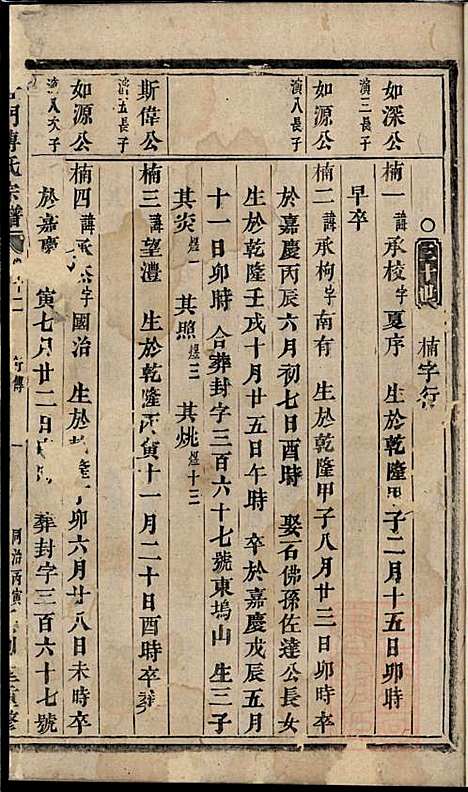 ○三十世 楠字行
如深公
演三長子
楠一 諱承校字夏序 生於乾隆甲子二月十五日卯時
早卒
如源公
演八長子
楠二 諱承枸字南有 生於乾隆甲子八月廿三日卯時卒
於嘉慶丙辰六月初七日酉時 娶石佛孫佐達公長女
生於乾隆壬戌十月廿五日午時 卒於嘉慶戊辰五月
十一日卯時 合葬封字三百六十七號東塢山 生三子
其炎煜一 其照煜三 其烑煜十三
斯偉公
演五長子
楠三 諱望澧 生於乾隆丙寅十一月二十日酉時卒
如源公
演八次子
楠四 諱承 字國治 生於 隆丁卯六月廿八日未時卒
於嘉慶 寅七月廿二日 葬封字三百六十七號
傅氏宗譜 行傳 一 同治丙寅 重修